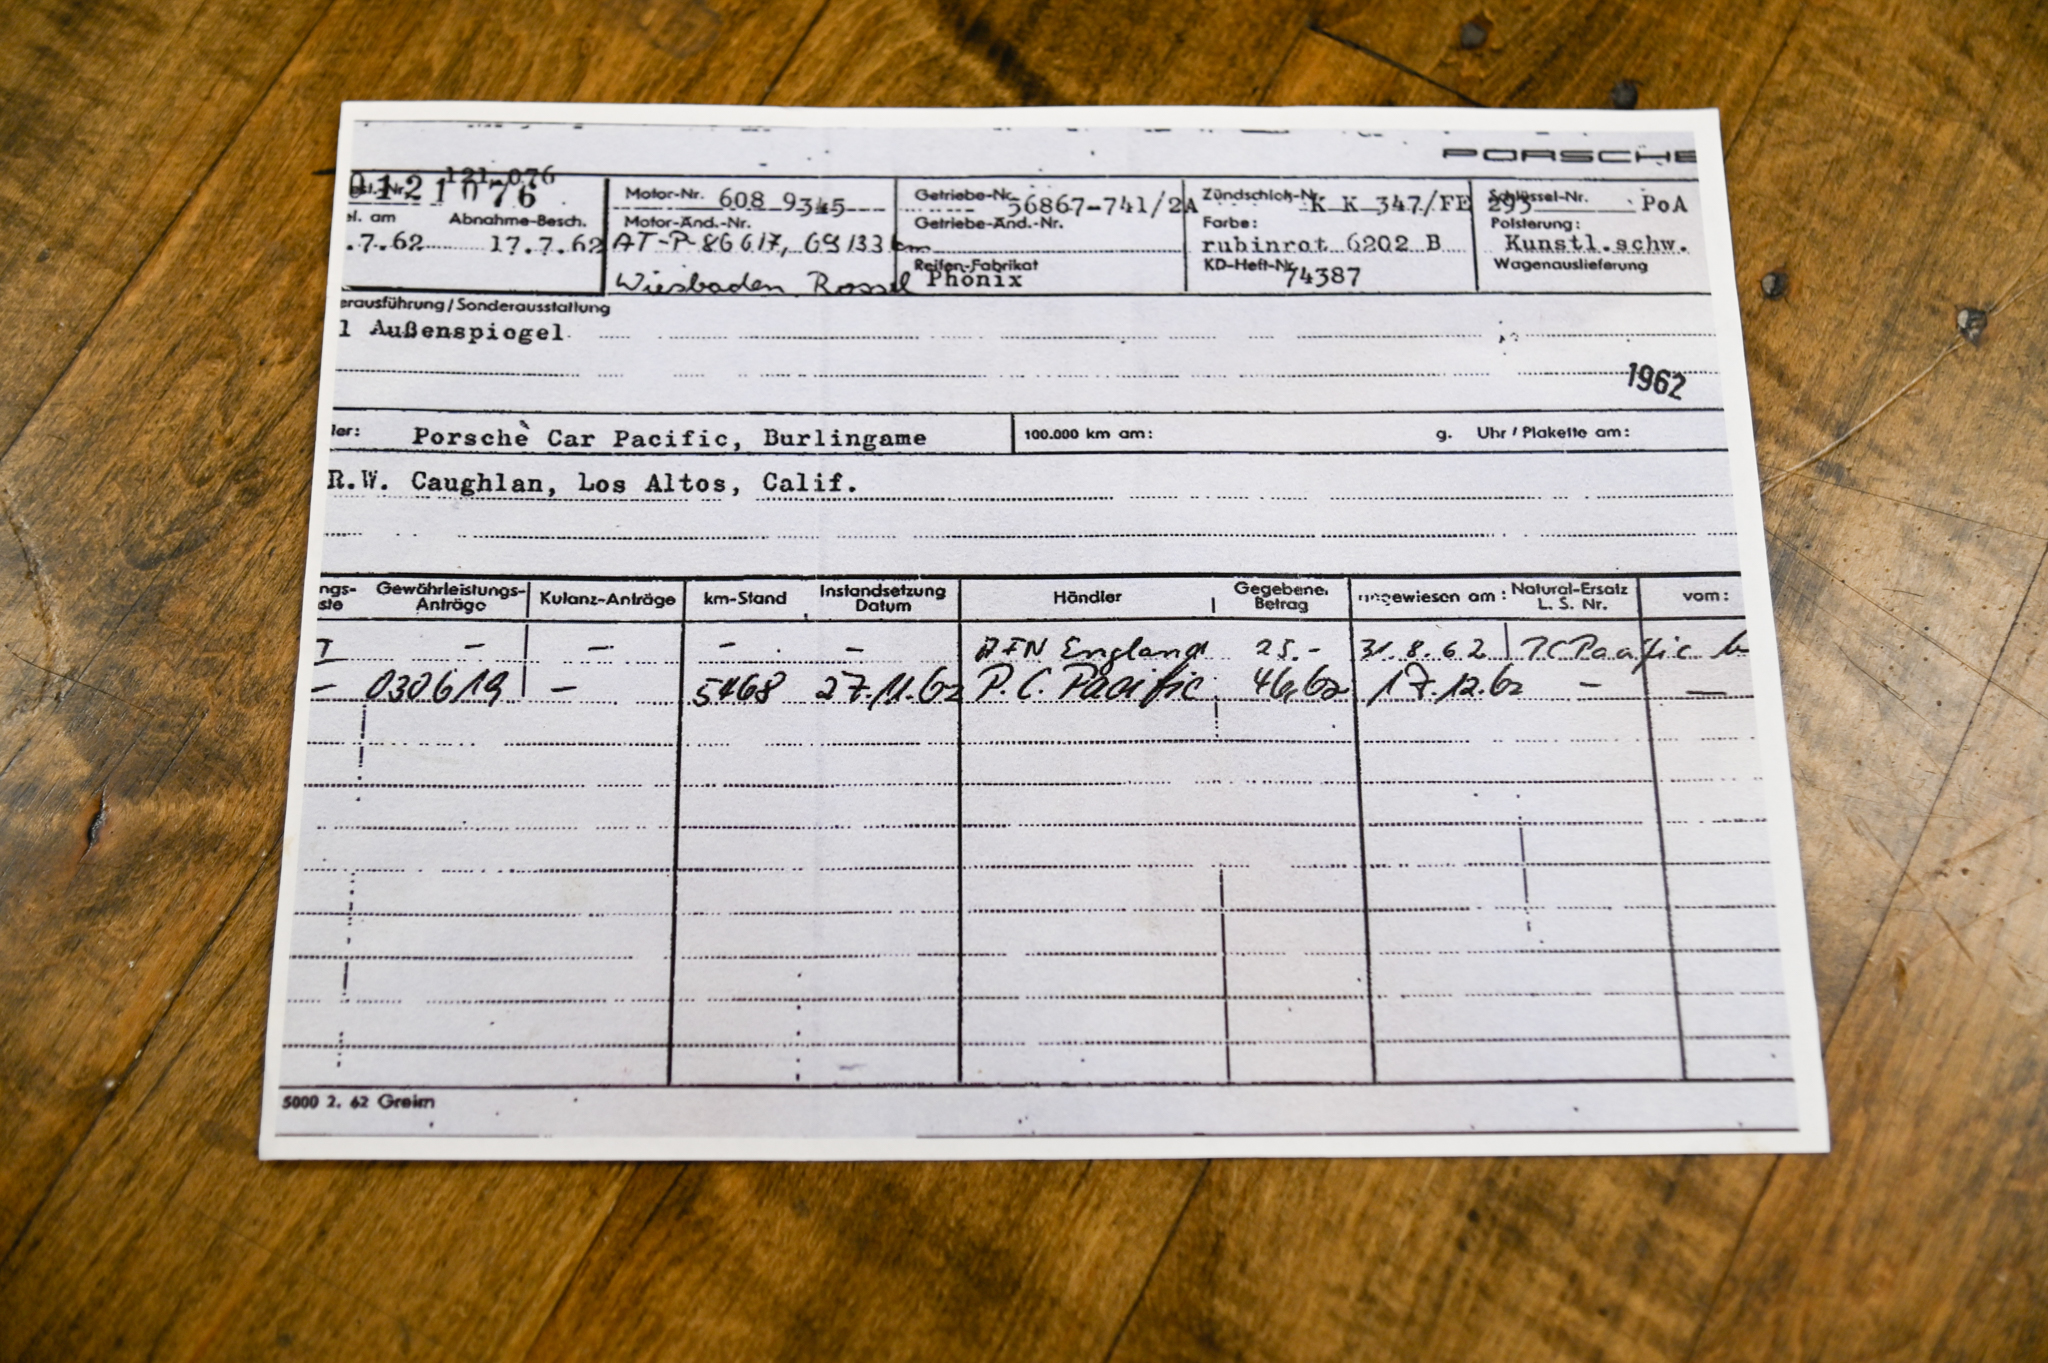 PORSCHE
121 076
0121076
Motor-Nr. 608 9345
Getriebe-Nr. 56867-741/2A
Zündschloß-Nr. K K 347/FE 293
Schlüssel-Nr. PoA
el. am Abnahme-Besch.
Motor-Änd.-Nr.
Getriebe-Änd.-Nr.
Farbe:
Polsterung:
.7.62 17.7.62
AT-P-86617, 69133 km
rubinrot 6202 B
Kunstl.schw.
Wiesbaden Rossel
Reifen-Fabrikat
Phönix
KD-Heft-Nr. 74387
Wagenauslieferung
erausführung/Sonderausstattung
1 Außenspiegel
1962
ler: Porsche Car Pacific, Burlingame
100.000 km am: g. Uhr / Plakette am:
R.W. Caughlan, Los Altos, Calif.
ngs-
ste
Gewährleistungs-
Anträge
Kulanz-Anträge
km-Stand
Instandsetzung
Datum
Händler
Gegebener
Betrag
ngewiesen am:
Natural-Ersatz
L. S. Nr.
vom:
- - - - AFN England 25.- 31.8.62 PC Pacific
- 030619 - 5468 27.11.62 P.C. Pacific 46,62 17.12.62 - -
5000 2. 62 Greim